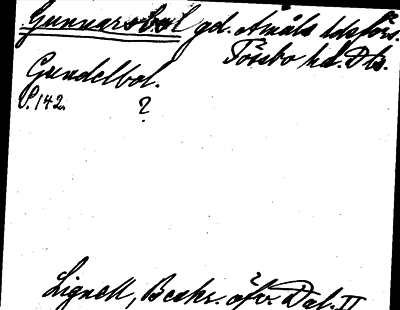 Gunnarsbol gd. Åmåls ldsförs.
Tössbo hd. Dls.
Gundelbol.
S. 142. ?
Lignell, Beskr. öfv. Dal. II